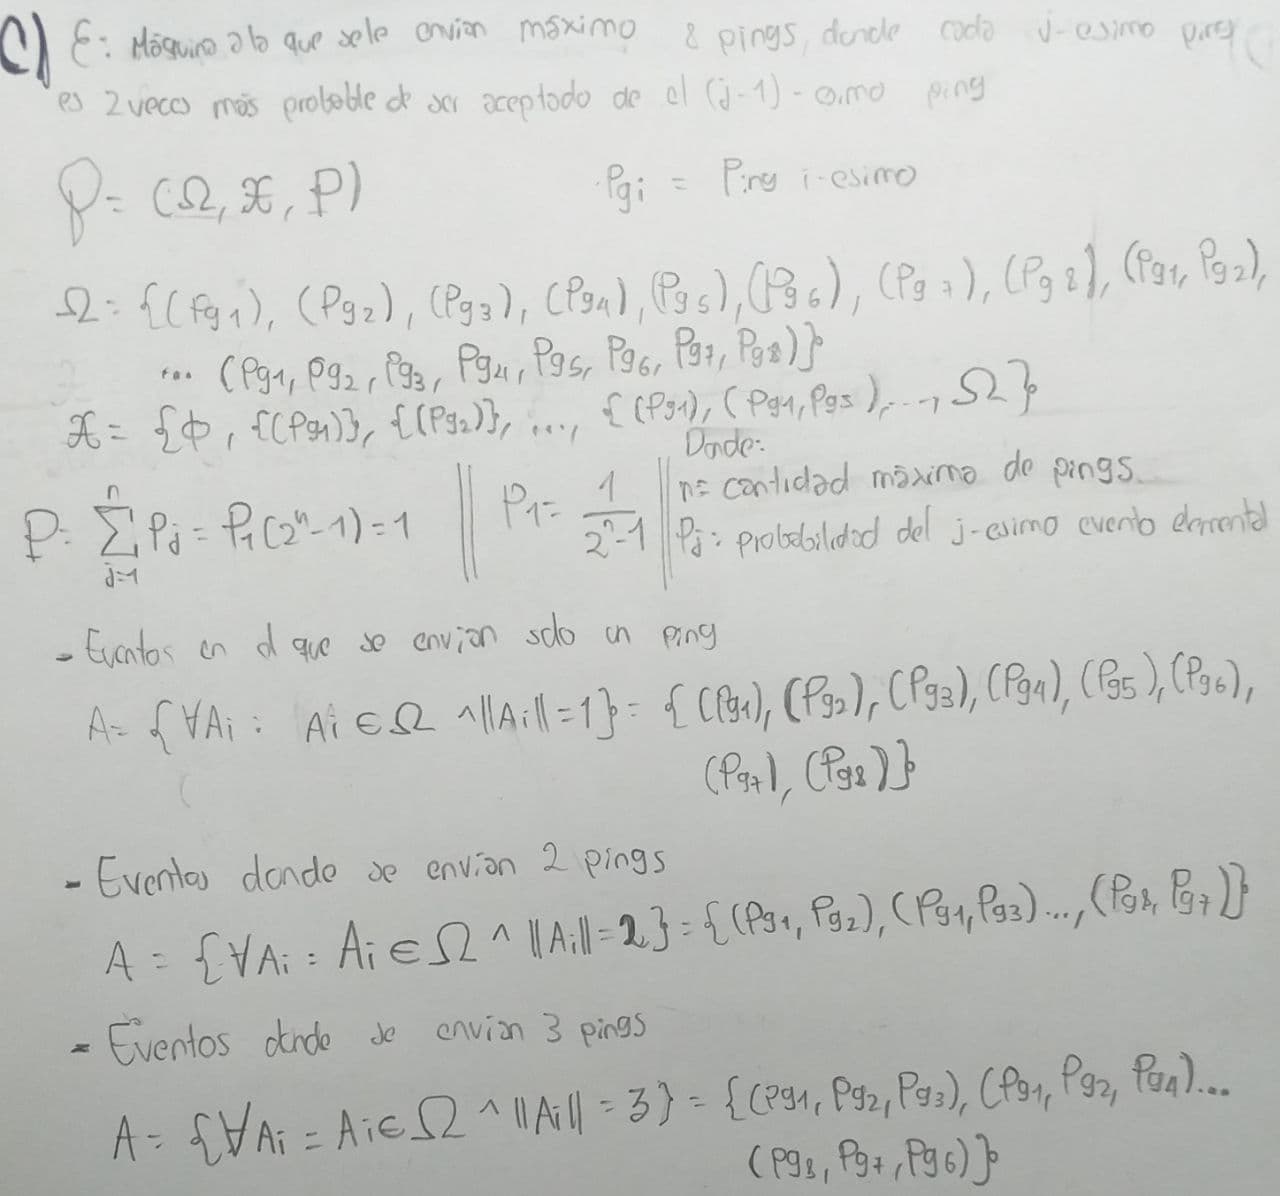 C) E: Máquina a la que se le envian máximo 8 pings, donde cada j-esimo ping
es 2 veces más probable de ser aceptado de el (j-1)-esimo ping
P = (Ω, X, P) Pgi = Ping i-esimo
Ω = {(Pg1), (Pg2), (Pg3), (Pg4), (Pg5), (Pg6), (Pg7), (Pg8), (Pg1, Pg2),
... (Pg1, Pg2, Pg3, Pg4, Pg5, Pg6, Pg7, Pg8)}
X = {Φ, {(Pg1)}, {(Pg2)}, ..., {(Pg1), (Pg1, Pg5), ..., Ω}
P = ∑_{j=1}^{n} Pj = P1(2ⁿ-1) = 1 || P1 = 1/(2ⁿ-1) || Donde:
n = cantidad máxima de pings.
Pj: probabilidad del j-esimo evento elemental
- Eventos en el que se envian solo un ping
A = {∀Ai : Ai ∈ Ω ^ ||Ai|| = 1} = {(Pg1), (Pg2), (Pg3), (Pg4), (Pg5), (Pg6),
(Pg7), (Pg8)}
- Eventos donde se envian 2 pings
A = {∀Ai : Ai ∈ Ω ^ ||Ai|| = 2} = {(Pg1, Pg2), (Pg1, Pg3) ..., (Pg8, Pg7)}
- Eventos donde se envian 3 pings
A = {∀Ai = Ai ∈ Ω ^ ||Ai|| = 3} = {(Pg1, Pg2, Pg3), (Pg1, Pg2, Pg4)...
(Pg8, Pg7, Pg6)}